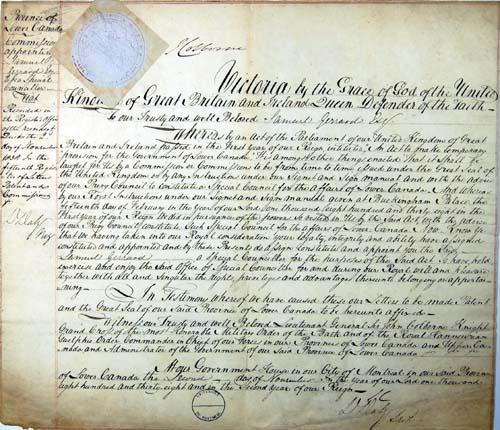 Province of
Lower Canada
Commission
appointing
Samuel
Gerrard Esq
Special
Councillor
Recorded in
the
of
J. Colborne
Victoria by the Grace of God of the United
Kingdom of Great Britain and Ireland Queen Defender of the Faith
To our Trusty and well Beloved Samuel Gerrard Esq
Whereas by an Act of the Parliament of our United Kingdom of Great
Britain and Ireland passed in the First year of our Reign, intituled "An Act to make temporary
provision for the Government of Lower Canada" It is amongst other things enacted that it shall be
lawful for Us by a Commission or Commissions to be from time to time issued under the Great Seal of
the United Kingdom or by any Instructions under our Signet and Sign Manual and with the advice
of our Privy Council to constitute a Special Council for the affairs of Lower Canada. And Whereas
by our Royal Instructions under our Signet and Sign Manual given at Buckingham Palace, the
day of February in the year of our Lord One thousand Eight hundred and thirty eight in the
year of our Reign We did in pursuance of the powers so vested in Us by the
of our Privy Council constitute a Special Council for the affairs of Lower Canada. Now Know ye
that We having taken into our Royal consideration your loyalty, integrity and ability have assigned
constituted and appointed and by these Presents do assign constitute and appoint you the said
Samuel Gerrard a Special Councillor for the purposes of the said Act to have hold
exercise and enjoy the said Office of Special Councillor for and during our Royal will and pleasure
together with all and singular the rights, privileges and advantages thereunto belonging or appertain-
ing
In Testimony whereof We have caused these our Letters to be made Patent
and the Great Seal of our said Province of Lower Canada to be hereunto affixed
Witness our Trusty and well Beloved Lieutenant General Sir John Colborne Knight
Grand Cross of the Most Honorable Military Order of the Bath and of the Royal Hanoverian
Guelphic Order Commander in Chief of our Forces in our Provinces of Lower Canada and Upper Ca-
nada and Administrator of the Government of our said Province of Lower Canada
At our Government House in our City of Montreal in our said Province
of Lower Canada the Second day of November in the year of our Lord one thousand
eight hundred and thirty eight and in the Second year of our Reign
D. Daly
Secy